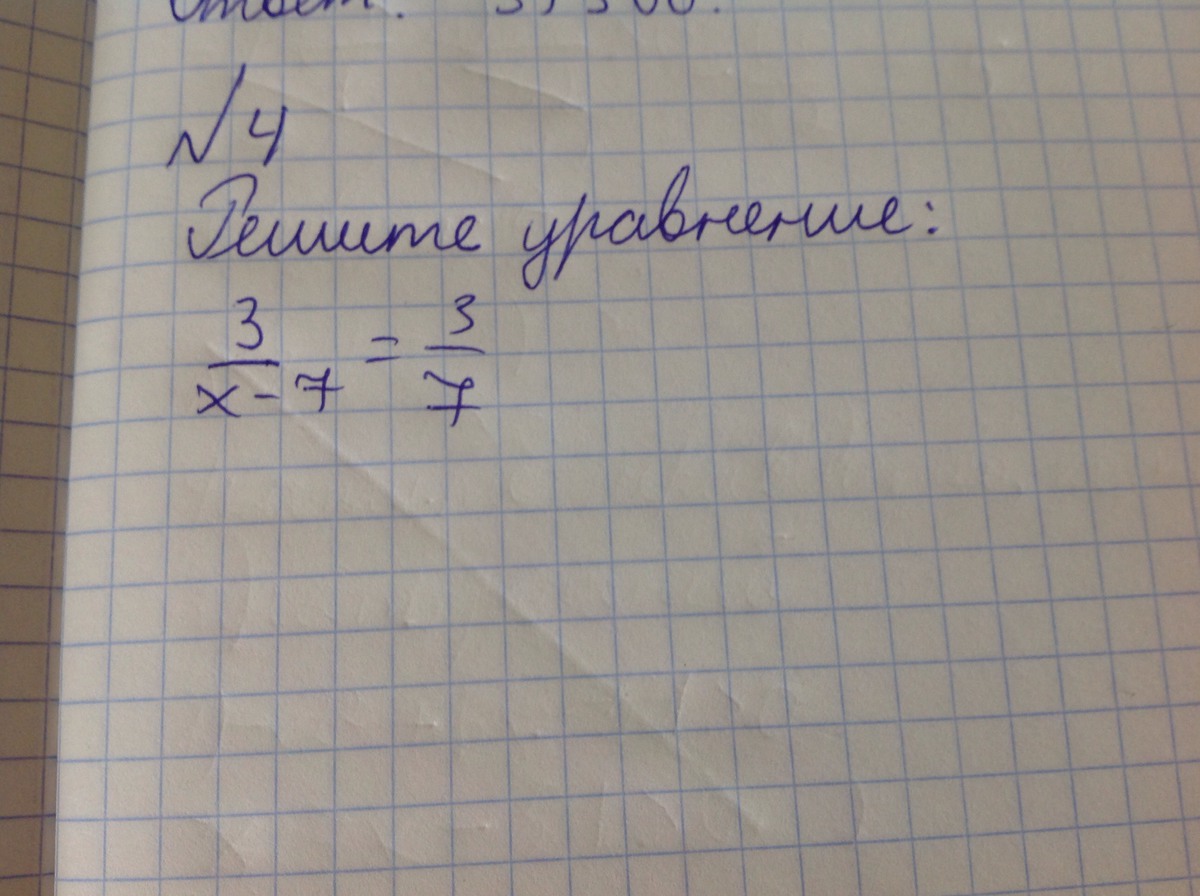 №4
Решите уравнение:
3/(x-7) = 3/7